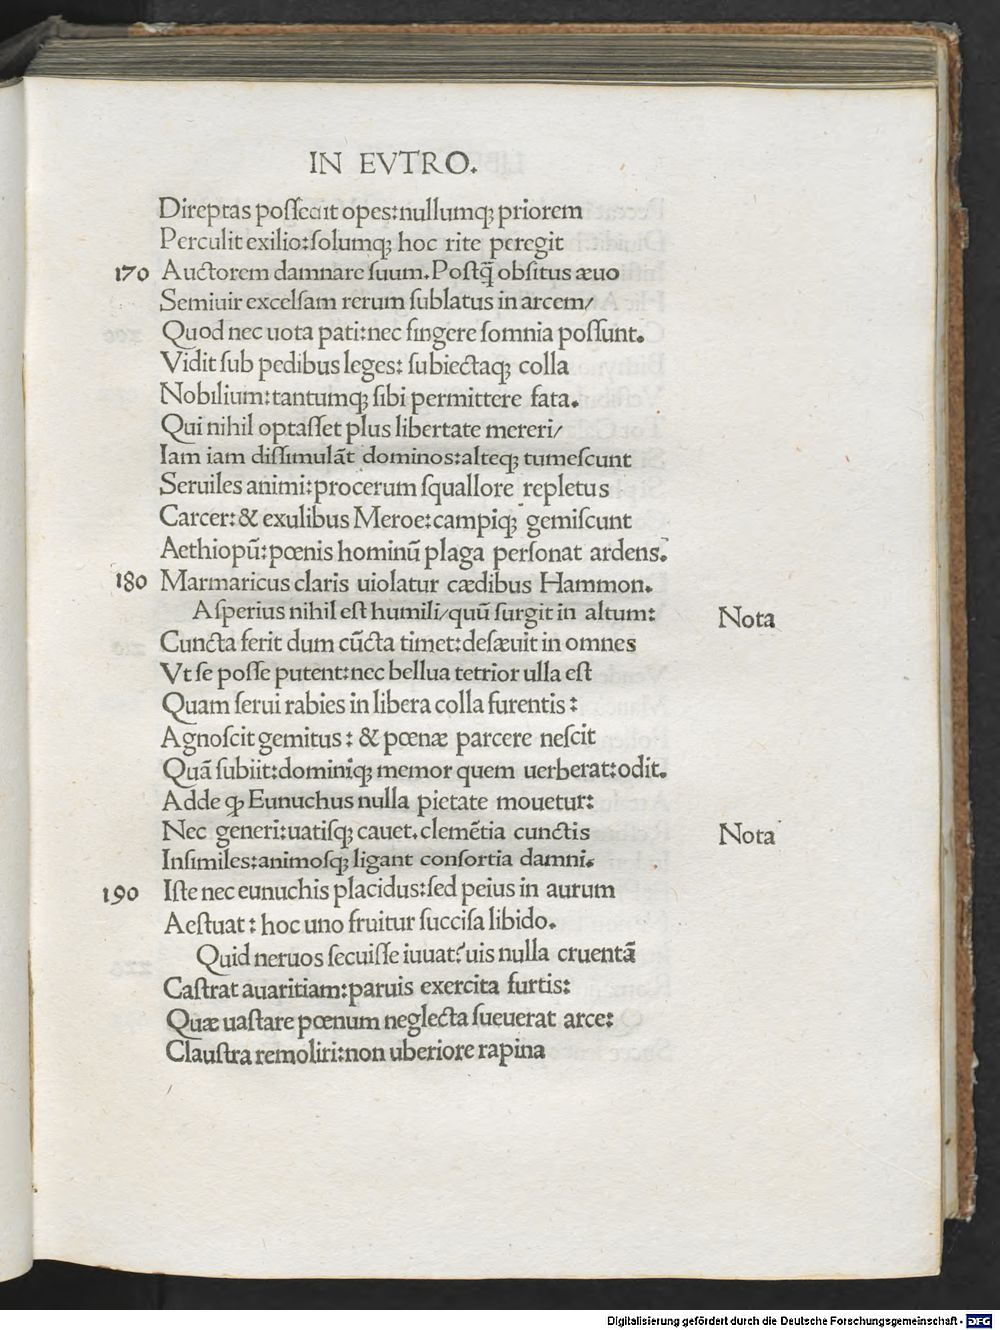 IN EVTRO.
Direptas possedit opes:nullumq; priorem
Perculit exilio:solumq; hoc rite peregit
170 Auctorem damnare suum.Postq̄ obsitus æuo
Semiuir excelsam rerum sublatus in arcem/
Quod nec uota pati:nec fingere somnia possunt.
Vidit sub pedibus leges: subiectaq; colla
Nobilium:tantumq; sibi permittere fata.
Qui nihil optasset plus libertate mereri/
Iam iam dissimulāt dominos:alteq; tumescunt
Seruiles animi:procerum squallore repletus
Carcer:& exulibus Meroe:campiq; gemiscunt
Aethiopū:pœnis hominū plaga personat ardens.
180 Marmaricus claris uiolatur cædibus Hammon.
Asperius nihil est humili/quū surgit in altum: Nota
Cuncta ferit dum cūcta timet:desæuit in omnes
Vt se posse putent:nec bellua tetrior ulla est
Quam serui rabies in libera colla furentis:
Agnoscit gemitus: & pœnæ parcere nescit
Quā subiit:dominiq; memor quem uerberat:odit.
Adde ꝙ Eunuchus nulla pietate mouetur:
Nec generi:uatisq; cauet.clemētia cunctis Nota
Insimiles:animosq; ligant consortia damni.
190 Iste nec eunuchis placidus:sed peius in aurum
Aestuat: hoc uno fruitur succisa libido.
Quid neruos secuisse iuuat?uis nulla cruentā
Castrat auaritiam:paruis exercita furtis:
Quæ uastare pœnum neglecta sueuerat arce:
Claustra remoliri:non uberiore rapina
Digitalisierung gefördert durch die Deutsche Forschungsgemeinschaft - DFG